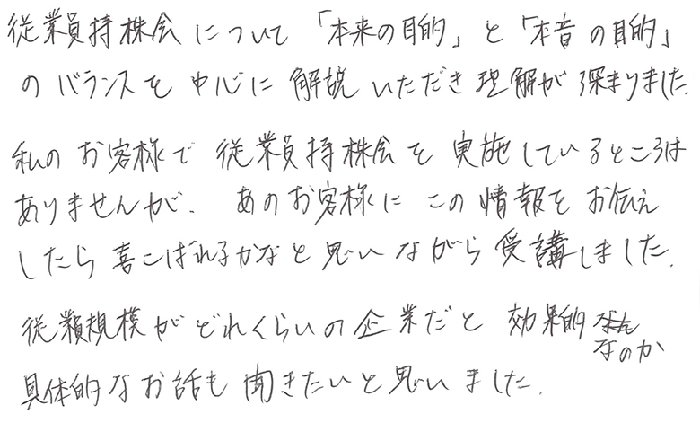 従業員持株会について「本来の目的」と「本音の目的」
のバランスを中心に解説いただき理解が深まりました
私のお客様で従業員持株会を実施しているところは
ありませんが、あのお客様にこの情報をお伝え
したら喜こばれるかなと思いながら受講しました。
従業規模がどれくらいの企業だと効果的
なのか
具体的なお話も聞きたいと思いました。